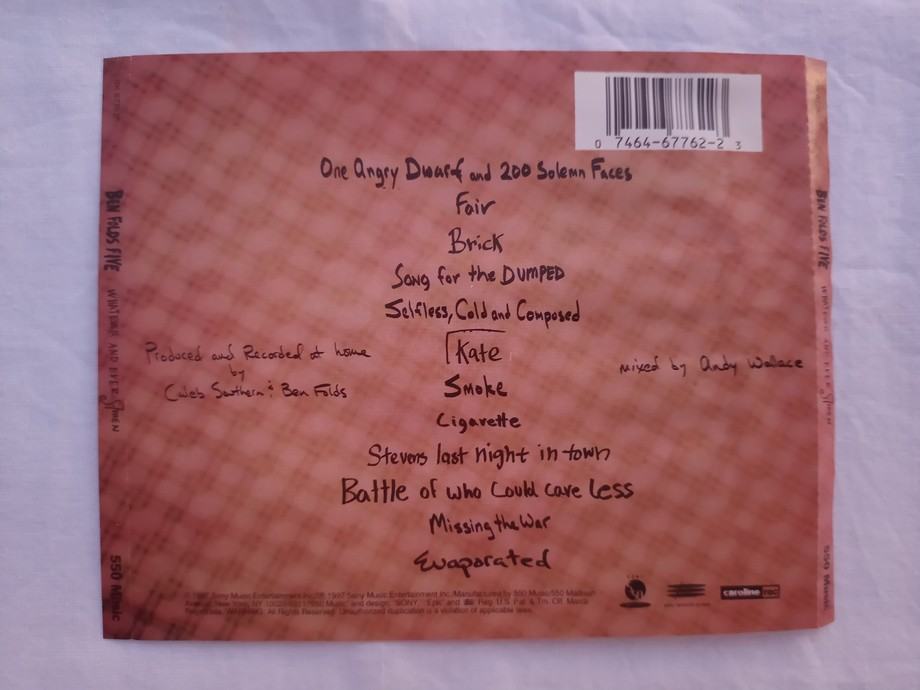 0 7464-67762-2 3
One Angry Dwarf and 200 Solemn Faces
Fair
Brick
Song for the DUMPED
Selfless, Cold and Composed
Kate
Smoke
Cigarette
Stevens last night in town
Battle of who Could care Less
Missing the War
Evaporated
Produced and Recorded at home
by
Caleb Southern & Ben Folds
mixed by Andy Wallace
BEN FOLDS FIVE WHATEVER AND EVER AMEN
550 Music
BEN FOLDS FIVE WHATEVER AND EVER AMEN
550 Music
© 1997 Sony Music Entertainment Inc./℗ 1997 Sony Music Entertainment Inc./Manufactured by 550 Music/550 Madison
Avenue, New York, NY
Unauthorized duplication is a violation of applicable laws.
caroline rec